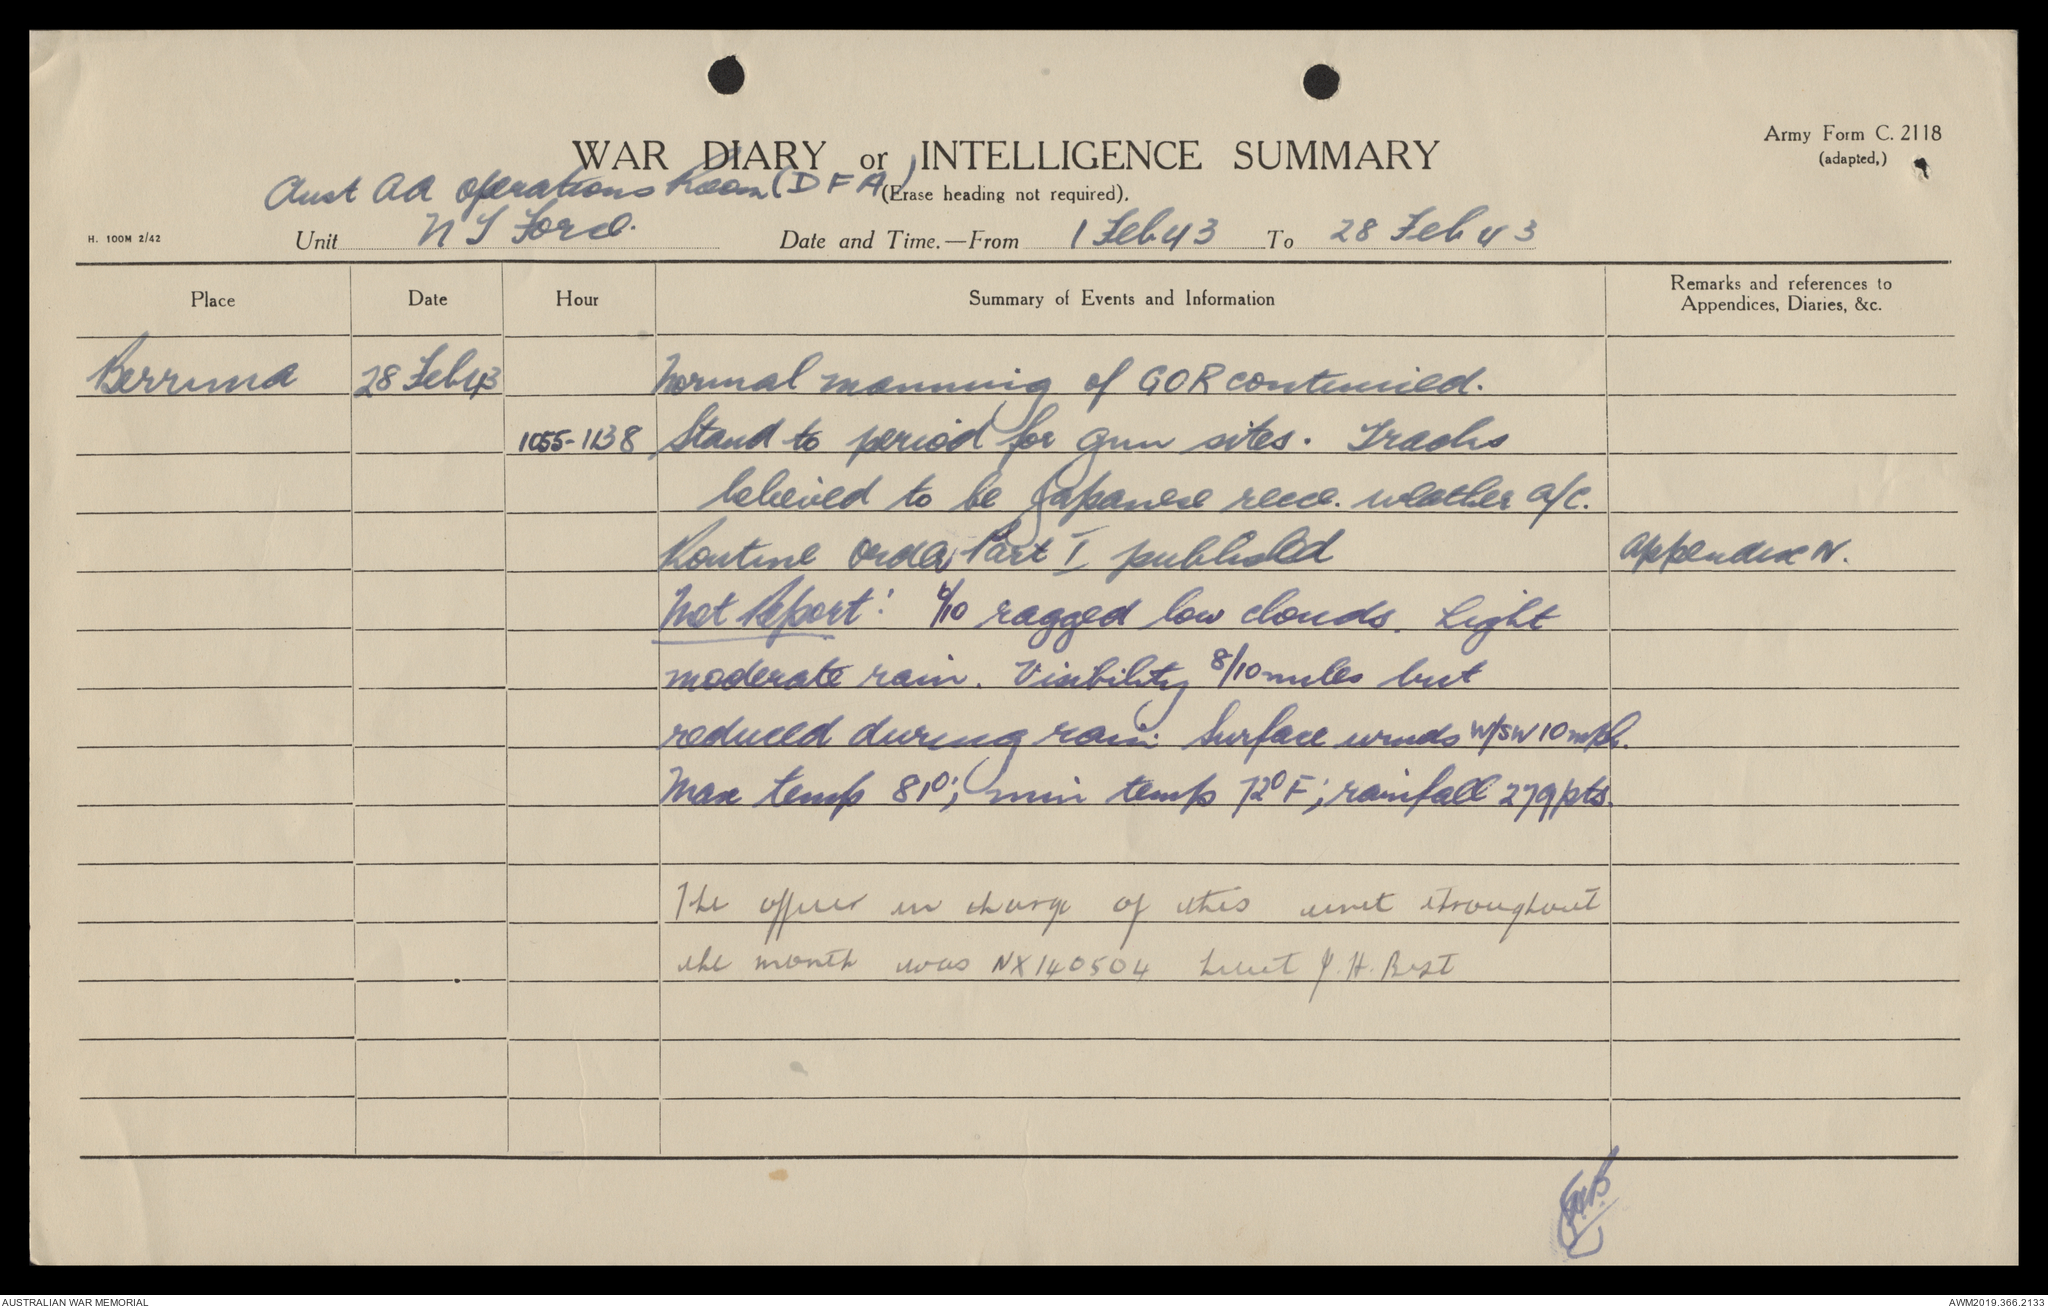 Army Form C. 2118
(adapted,)
WAR DIARY or INTELLIGENCE SUMMARY
Aust AA Operations Room (DFA)
(Erase heading not required).
H. 100M 2/42
Unit N T Force. Date and Time.—From 1 Feb 43 To 28 Feb 43
Place Date Hour Summary of Events and Information Remarks and references to Appendices, Diaries, &c.
Berrima 28 Feb 43 Normal manning of GOR continued.
1055-1138 Stand to period for gun sites. Tracks
believed to be Japanese recce. weather a/c.
Routine Order Part I published Appendix N.
Met Report: /10 ragged low clouds. Light
moderate rain. Visibility 8/10 miles but
reduced during rain. Surface winds W/SW 10 mph.
Max temp 81°; min temp 72°F; rainfall 279 pts.
The officer in charge of this unit throughout
the month was NX140504 Lieut J. H. Best
AUSTRALIAN WAR MEMORIAL
AWM2019.366.2133